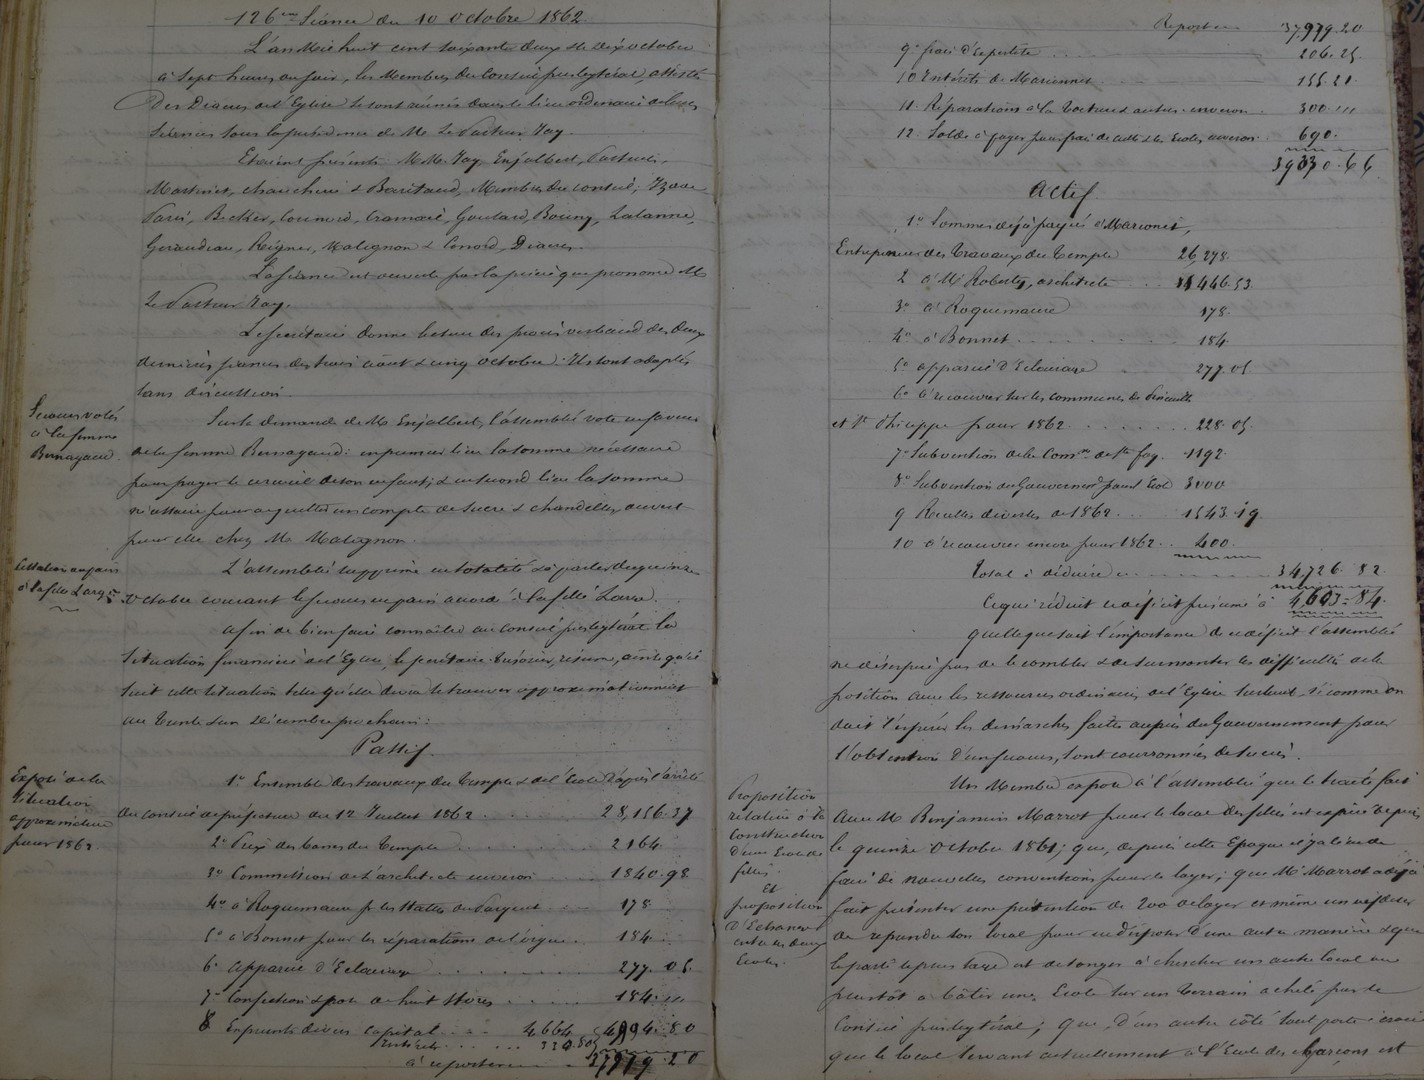 126me Séance du 10 Octobre 1862.
L'an Mil huit cent soixante deux & le dix octobre
à Sept heures du soir, les Membres du Conseil presbytéral assisté
des Diacres de l'Eglise se sont réunis dans le lieu ordinaire de leurs
séances sous la présidence de M. Le Pasteur Hoy.
Etaient présents MM. Hoy, Enjalbert, Pasteurs,
Martinet, & Baritaud, Membres du conseil,
Paris, Becker, Cramail, Goulard, Bouny, Lalanne,
Geraudeau, Reignier, Matignon & Conord, Diacres.
La séance est ouverte par la prière que prononce M.
Le Pasteur Hoy.
Le secrétaire donne lecture des procès verbaux des deux
dernières séances des trois août & cinq octobre. Ils sont adoptés
sans discussion.
Secours votés
à la femme
Bernagaud.
Sur la demande de M. Enjalbert, l'assemblée vote en faveur
de la femme Bernagaud: en premier lieu la somme nécessaire
pour payer le cercueil de son enfant, & en second lieu la somme
nécessaire pour acquitter un compte de sucre & chandelles, ouvert
pour elle chez M. Matignon.
à la fille
L'assemblée supprime en totalité & à partir du quinze
Octobre courant le secours en pain accordé à la fille
Afin de bien faire connaître au Conseil presbytéral la
situation financière de l'Eglise, le secrétaire trésorier, résume, ainsi qu'il
suit cette situation telle qu'elle devra se trouver approximativement
au trente & un Décembre prochain:
Passif.
Exposé de la
situation
approximative
pour 1862
1o Ensemble des travaux du Temple & de l'école d'après l'arrêté
du conseil de préfecture du 12 Juillet 1862 28,156.37
2o Prix des bancs du Temple 2164
3o Commission de l'architecte environ 1840.98
4o à Roquemaure pr les Stalles du Parquet 178
5o à Bonnet pour les réparations de l'orgue 184
6o Appareil d'Eclairage 277.05
7o Confection & pose de huit Stores 184
8 Emprunts divers capital 4664 4994.80
Intérêts 330.80
à reporter 37,979.20
Report 37,979.20
9o frais d'expertise 206.25
10 Intérêts de Marionnet 155.21
11. Réparations à la Toiture & autres environ 300
12. Solde à payer pour frais de culte & les Ecoles environ 690.
39330.66
Actif.
1o Sommes déjà payées à Marionnet,
Entrepreneur des travaux du Temple 26,278.
2 à M. Roberty, architecte 1446.53
3o à Roquemaure 178
4o à Bonnet 184
5o appareil d'Eclairage 277.05
6o à recouvrer sur les communes de
et St Philippe pour 1862 228.05
7o Subvention de la Comon de Ste foy. 1192
8o Subvention du Gouvernemt pour l'Ecole 3000
9 Recettes diverses de 1862 1543.19
10 à recouvrer encore pour 1862 400
Total à déduire 34,726.82
Ce qui réduit le déficit présumé à 4,603.84
Quelle que soit l'importance de ce déficit l'assemblée
ne désespère pas de le combler & de surmonter les difficultés de la
position avec les ressources ordinaires de l'Eglise surtout, si comme on
doit l'espérer les démarches faites auprès du Gouvernement pour
l'obtention d'un secours, sont couronnées de succès.
Proposition
relative à la
construction
d'une Ecole de
filles
et
proposition
d'Echange
entre les deux
Ecoles.
Un Membre expose à l'assemblée que le traité fait
avec M. Benjamin Marrot pour le local des filles est expiré depuis
le quinze Octobre 1861; que, depuis cette époque il y a lieu de
faire de nouvelles conventions pour le loyer; que M. Marrot a déjà
fait présenter une prétention de 200 de loyer et même un
de reprendre son local pour en disposer d'une autre manière & que
le parti le plus sage est de songer à chercher un autre local ou
plustôt à bâtir une Ecole sur un terrain acheté par le
Conseil presbytéral; que, d'un autre côté tout porte à croire
que le local servant actuellement à l'Ecole des Garçons est